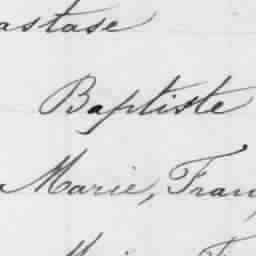 astase
Baptiste
Marie, Fran